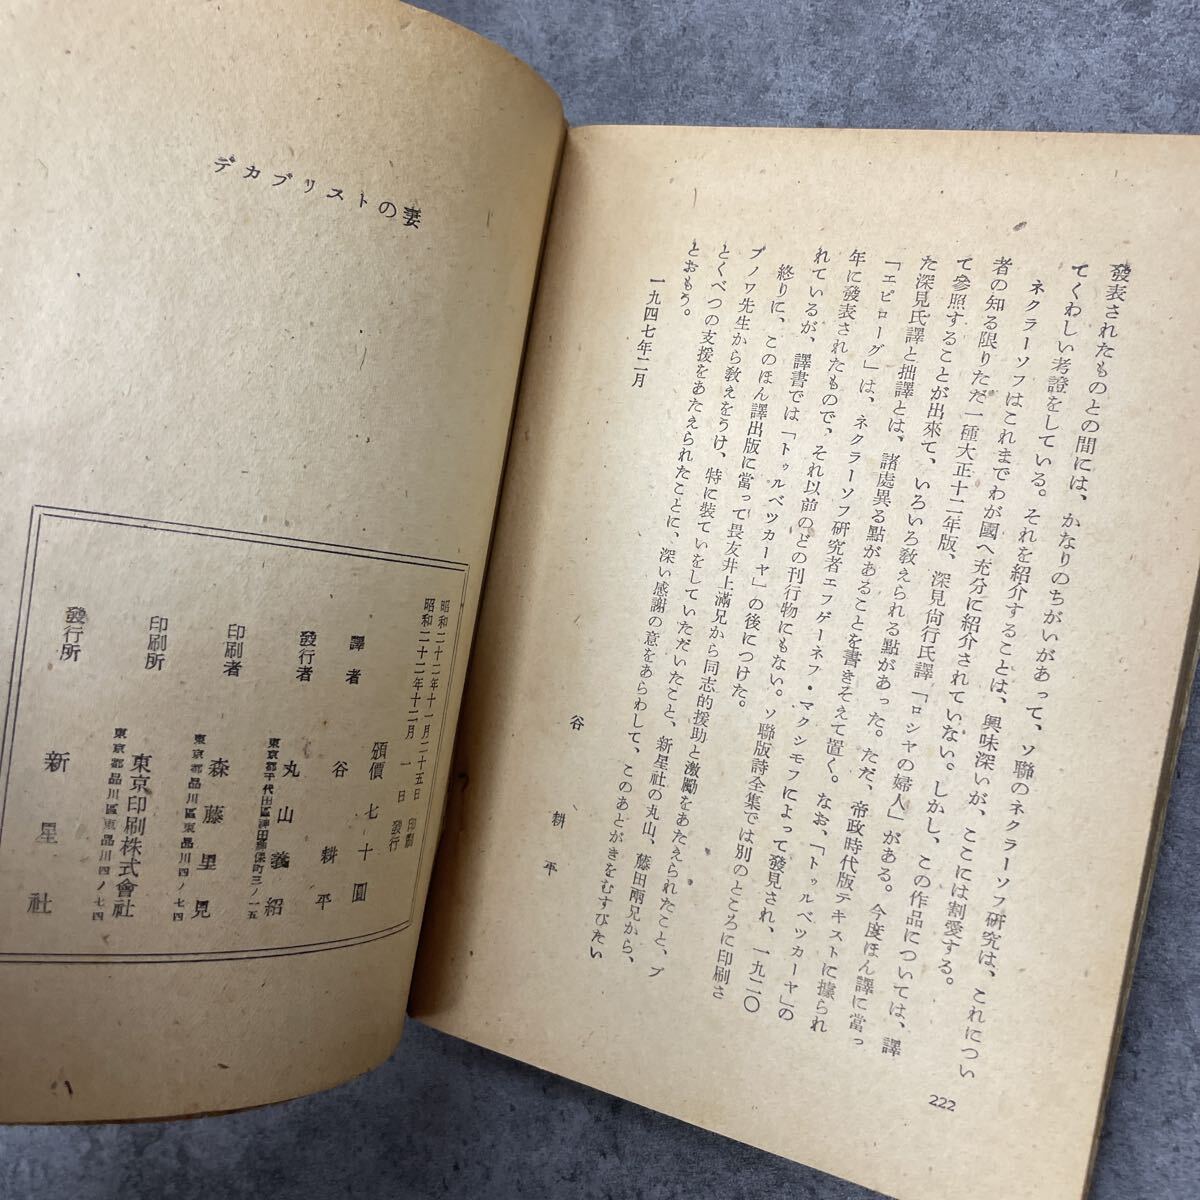 發表されたものとの間には、かなりのちがいがあって、ソ聯のネクラーソフ研究は、これについ
てくわしい考證をしている。それを紹介することは、興味深いが、ここには割愛する。
ネクラーソフはこれまでわが國へ充分に紹介されていない。しかし、この作品については、譯
者の知る限りただ一種大正十二年版、深見尙行氏譯「ロシヤの婦人」がある。今度ほん譯に當っ
て參照することが出來て、いろいろ敎えられる點があった。ただ、帝政時代版テキストに據られ
た深見氏譯と拙譯とは、諸處異る點があることを書きそえて置く。なお、「トゥルベツカーヤ」の
「エピローグ」は、ネクラーソフ研究者エフゲーネフ・マクシモフによって發見され、一九二〇
年に發表されたもので、それ以前のどの刊行物にもない。ソ聯版詩全集では別のところに印刷さ
れているが、譯書では「トゥルベツカーヤ」の後につけた。
終りに、このほん譯出版に當って畏友井上滿兄から同志的援助と激勵をあたえられたこと、ブ
ブノワ先生から敎えをうけ、特に裝ていをしていただいたこと、新星社の丸山、藤田兩兄から、
とくべつの支援をあたえられたことに、深い感謝の意をあらわして、このあとがきをむすびたい
とおもう。
一九四七年二月
谷 耕平
222
デカブリストの妻
昭和二十二年十一月二十五日 印刷
昭和二十二年十二月 一 日 發行
頒價 七十圓
譯者 谷 耕平
發行者 丸山義紹
東京都千代田區神田神保町三ノ一五
印刷者 森藤里見
東京都品川區東品川四ノ七四
印刷所 東京印刷株式會社
東京都品川區東品川四ノ七四
發行所 新星社